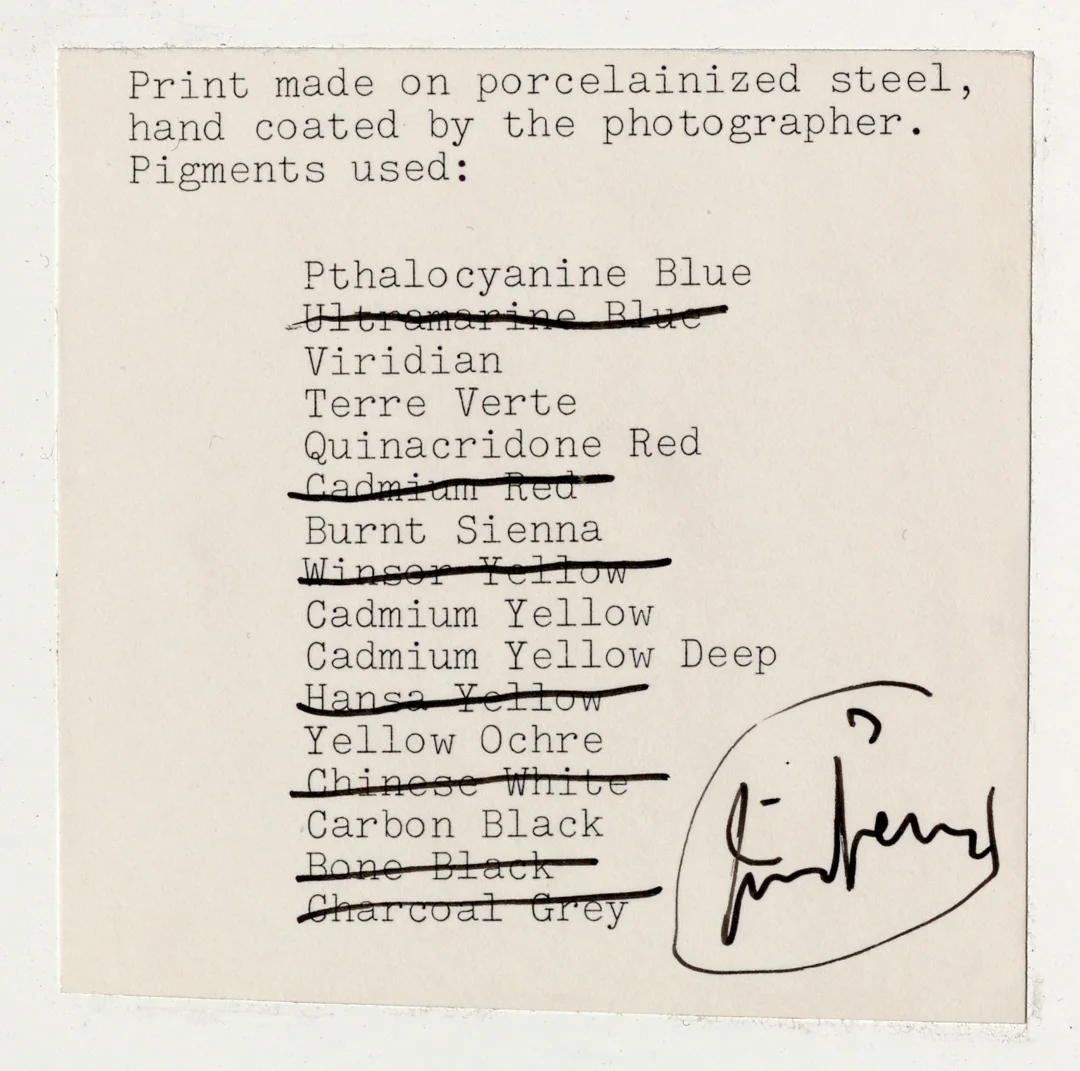 Print made on porcelainized steel,
hand coated by the photographer.
Pigments used:
Pthalocyanine Blue
Ultramarine Blue
Viridian
Terre Verte
Quinacridone Red
Cadmium Red
Burnt Sienna
Winsor Yellow
Cadmium Yellow
Cadmium Yellow Deep
Hansa Yellow
Yellow Ochre
Chinese White
Carbon Black
Bone Black
Charcoal Grey